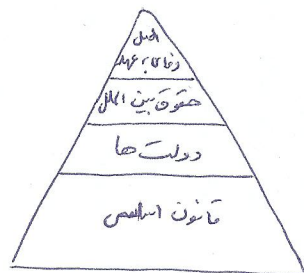 اصل
وفای به عهد
حقوق بین الملل
دولت ها
قانون